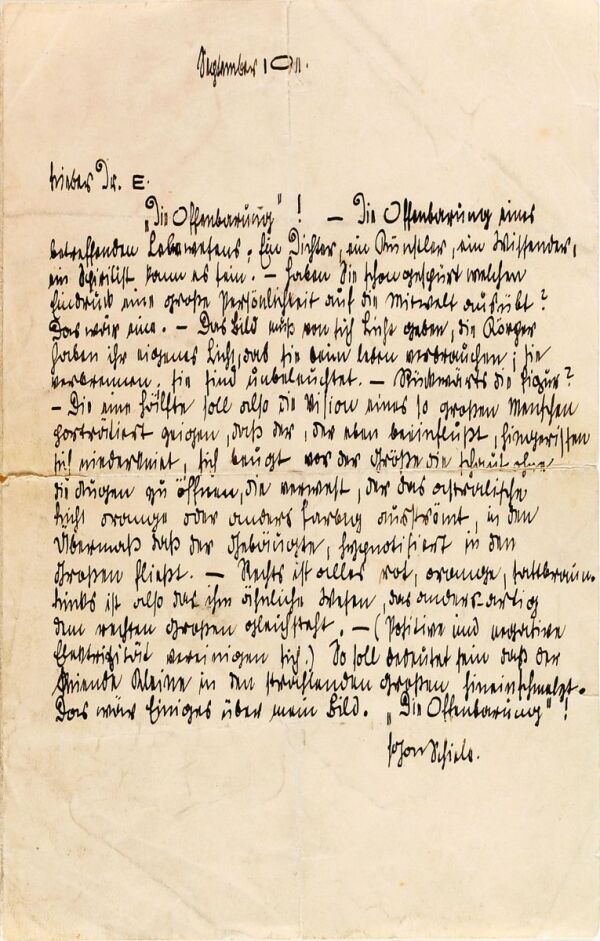 September 1911.
Lieber Dr. E.
„Die Offenbarung"! — Die Offenbarung eines
betreffenden Lebewesens. Ein Dichter, ein Künstler, ein Wissender,
ein Spiritist kann es sein. — Haben Sie schon gespürt welchen
Eindruck eine große Persönlichkeit auf die Mitwelt ausübt?
Das wär eine. — Das Bild muß von sich Licht geben, die Körper
haben ihr eigenes Licht, das sie beim leben verbrauchen; sie
verbrennen, sie sind unbeleuchtet. — Rückwärts die Figur?
— Die eine Hälfte soll also die Vision eines so großen Menschen
porträtiert zeigen, daß der, der eben beeinflußt, hingerissen
sich niederkniet, sich beugt vor der Größe die schaut ohne
die Augen zu öffnen, die verwest, der das astralische
Licht orange oder anders farbig ausströmt, in den
Übermaß daß der Gebäugte, hypnotisiert in den
Großen fließt. — Rechts ist alles rot, orange, sattbraun.
Links ist also das ihm ähnliche Wesen, das anders artig
dem rechten Großen gleichsteht. — (Positive und negative
Elektrizität vereinigen sich.) So soll bedeutet sein daß der
Kniende Kleine in den strahlenden Großen hineinschmelzt.
Das wär Einiges über mein Bild. „Die Offenbarung"!
Egon Schiele.